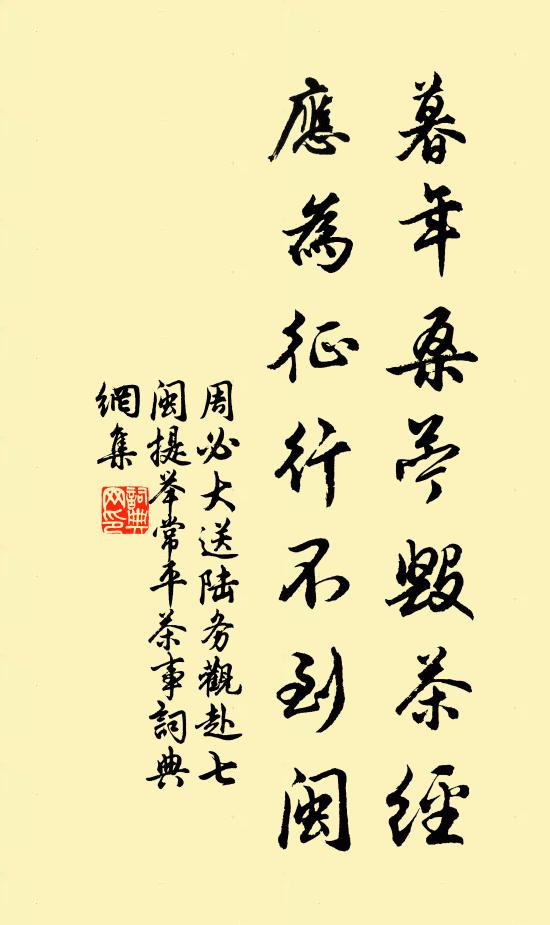 暮年桑苧毀茶經
應為征行不到閩
周必大送陆务觀赴七
閩提举常平茶事詞典
網集
詞典
网印